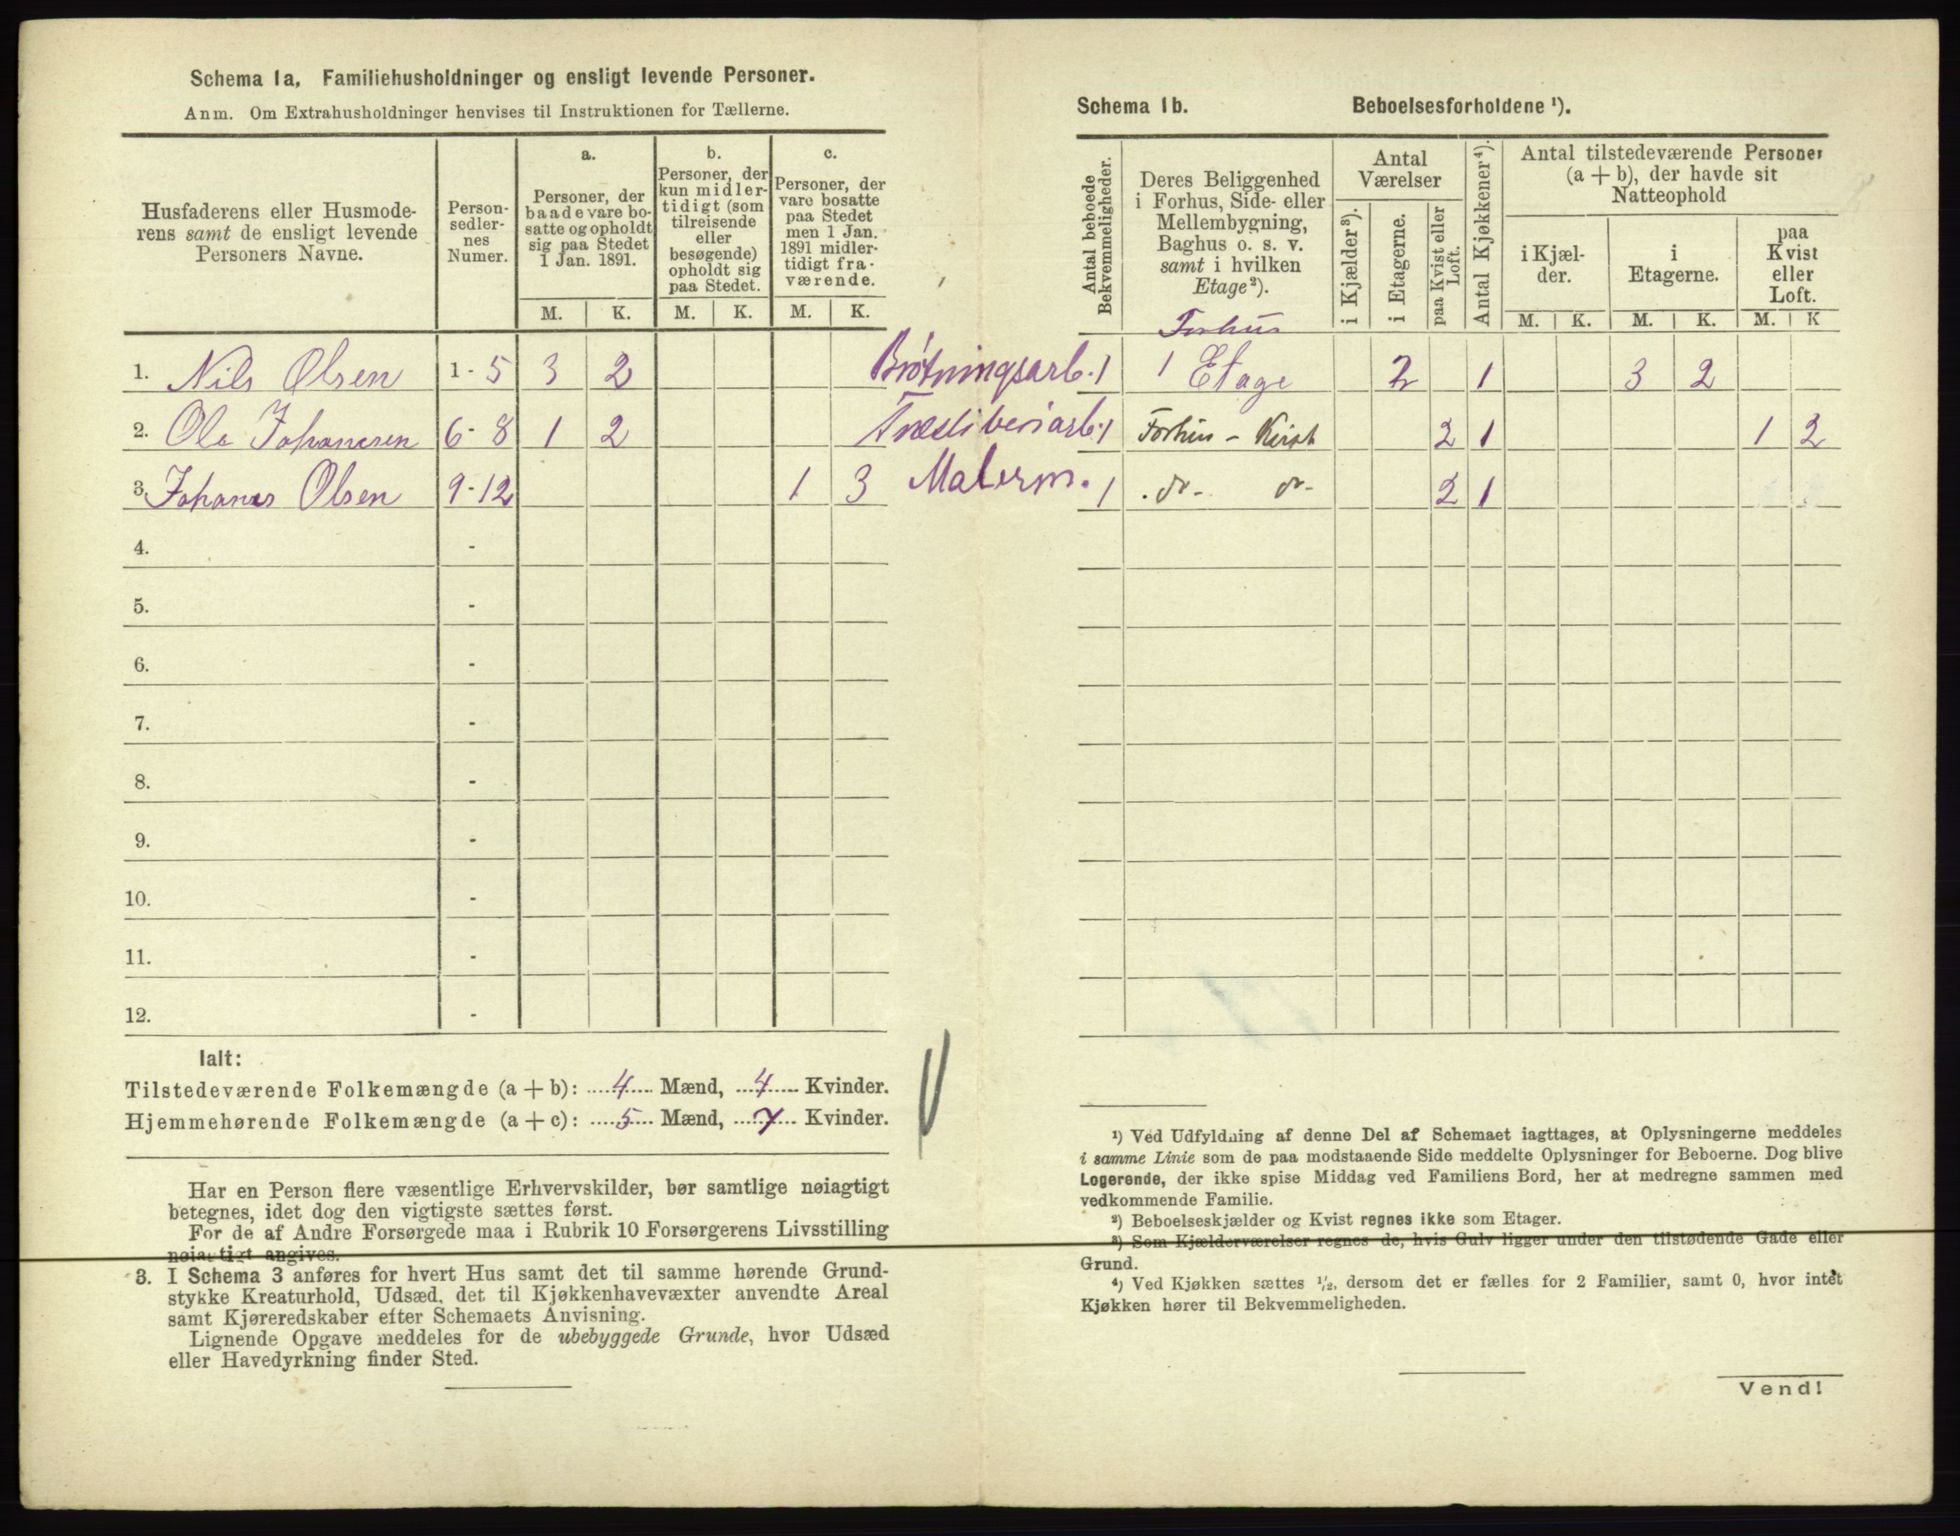 Schema 1a, Familiehusholdninger og ensligt levende Personer.
Anm. Om Extrahusholdninger henvises til Instruktionen for Tællerne.
Husfaderens eller Husmode-
rens samt de ensligt levende
Personers Navne.
Person-
sedler-
nes
Numer.
a.
Personer, der
baade vare bo-
satte og opholdt
sig paa Stedet
1 Jan. 1891.
b.
Personer, der
kun midler-
tidigt (som
tilreisende
eller
besøgende)
opholdt sig
paa Stedet.
c.
Personer, der
vare bosatte
paa Stedet
men 1 Jan.
1891 midler-
tidigt fra-
værende.
M. K. M. K. M. K.
1. Nils Olsen 1 - 5 3 2
2. Ole Johansen 6 - 8 1 2
3. Johanes Olsen 9 - 12 1 3 Malerm.
4. -
5. -
6. -
7. -
8. -
9. -
10. -
11. -
12. -
Ialt:
Tilstedeværende Folkemængde (a + b): 4 Mænd, 4 Kvinder.
Hjemmehørende Folkemængde (a + c): 5 Mænd, 7 Kvinder.
Har en Person flere væsentlige Erhvervskilder, bør samtlige nøiagtigt
betegnes, idet dog den vigtigste sættes først.
For de af Andre Forsørgede maa i Rubrik 10 Forsørgerens Livsstilling
nøiagtigt angives.
3. I Schema 3 anføres for hvert Hus samt det til samme hørende Grund-
stykke Kreaturhold, Udsæd, det til Kjøkkenhavevæxter anvendte Areal
samt Kjøreredskaber efter Schemaets Anvisning.
Lignende Opgave meddeles for de ubebyggede Grunde, hvor Udsæd
eller Havedyrkning finder Sted.
Schema 1b. Beboelsesforholdene ¹).
Antal beboede
Bekvemmeligheder.
Deres Beliggenhed
i Forhus, Side- eller
Mellembygning,
Baghus o. s. v.
samt i hvilken
Etage²).
Antal
Værelser
i Kjælder³).
i Etagerne.
paa Kvist eller
Loft.
Antal Kjøkkener⁴).
Antal tilstedeværende Personer
(a + b), der havde sit
Natteophold
i Kjæl-
der.
i
Etagerne.
paa
Kvist
eller
Loft.
M. K. M. K. M. K
Forhus
1 1 Etage 2 1 3 2
1 Forhus - Kvist 2 1 1 2
1 do- do- 2 1
¹) Ved Udfyldning af denne Del af Schemaet iagttages, at Oplysningerne meddeles
i samme Linie som de paa modstaaende Side meddelte Oplysninger for Beboerne. Dog blive
Logerende, der ikke spise Middag ved Familiens Bord, her at medregne sammen med
vedkommende Familie.
²) Beboelseskjælder og Kvist regnes ikke som Etager.
³) Som Kjælderværelser regnes de, hvis Gulv ligger under den tilstødende Gade eller
Grund.
⁴) Ved Kjøkken sættes ¹/₂, dersom det er fælles for 2 Familier, samt 0, hvor intet
Kjøkken hører til Bekvemmeligheden.
Vend!